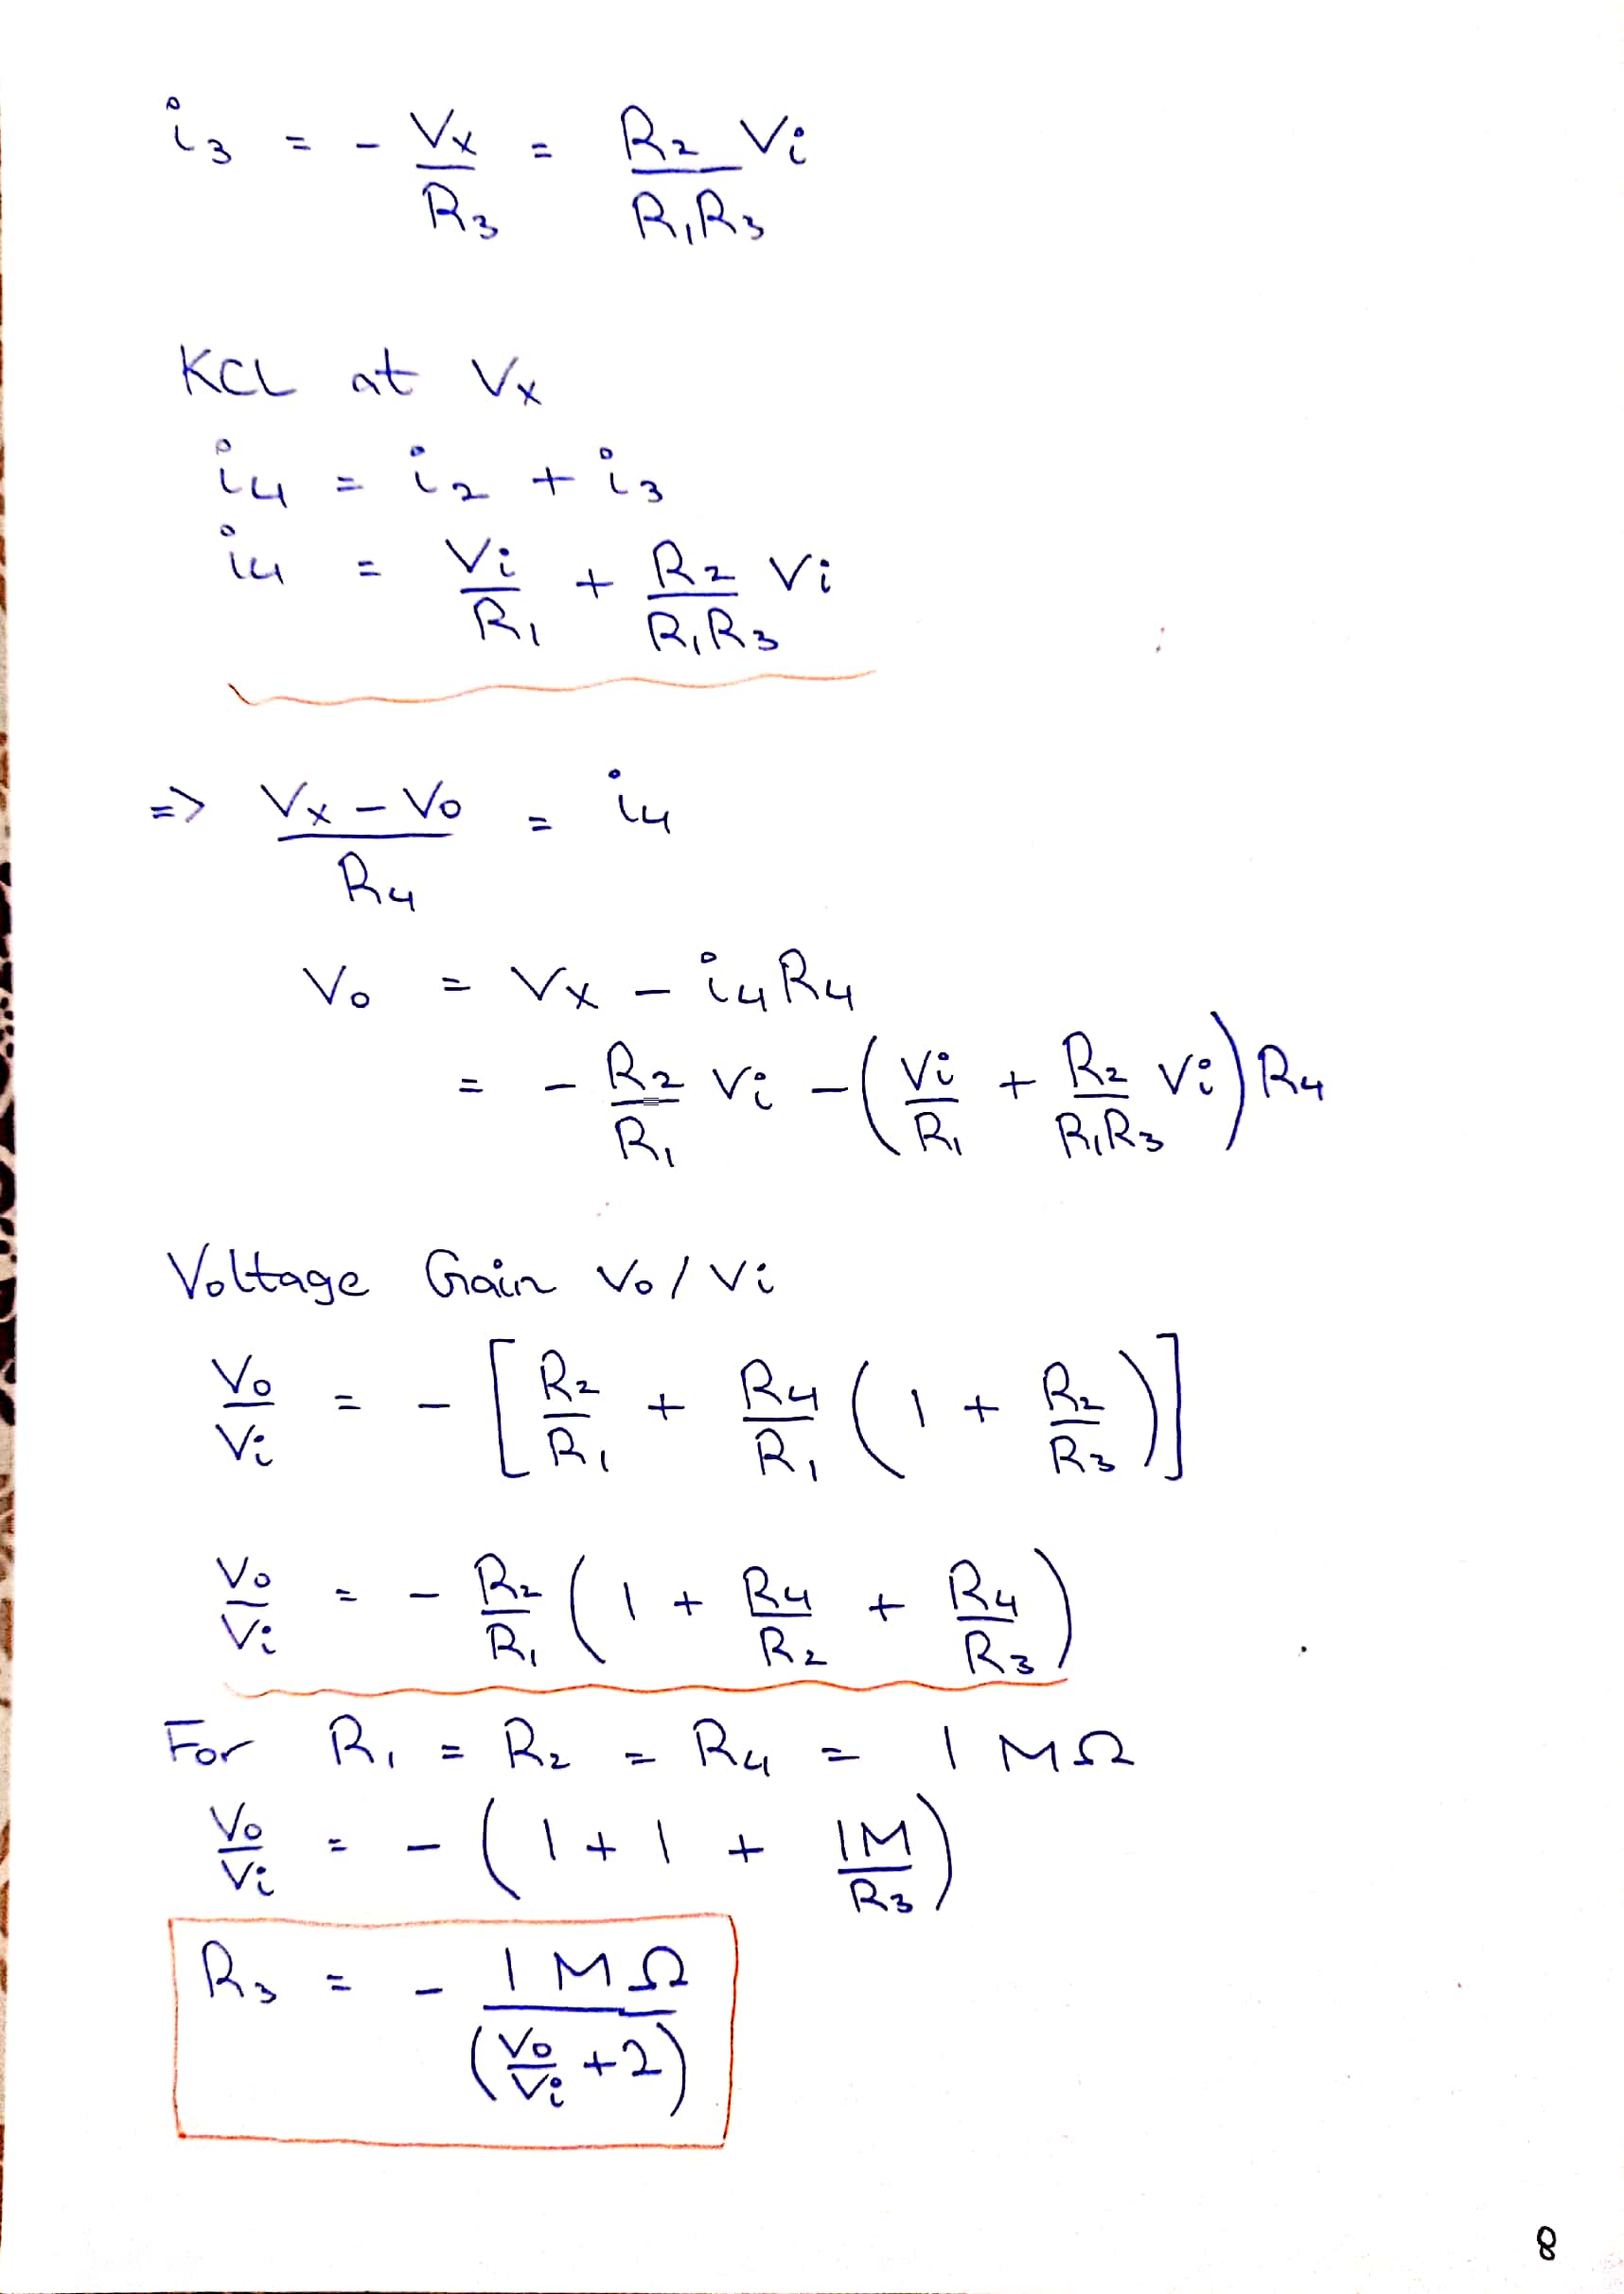 i3 = - Vx/R3 = R2/R1R3 Vi
KCL at Vx
i4 = i2 + i3
i4 = Vi/R1 + R2/R1R3 Vi
=> Vx - Vo/R4 = i4
Vo = Vx - i4R4
= - R2/R1 Vi - (Vi/R1 + R2/R1R3 Vi) R4
Voltage Gain Vo/Vi
Vo/Vi = - [R2/R1 + R4/R1 (1 + R2/R3)]
Vo/Vi = - R2/R1 (1 + R4/R2 + R4/R3)
For R1 = R2 = R4 = 1 MΩ
Vo/Vi = - (1 + 1 + 1M/R3)
R3 = - 1 MΩ/(Vo/Vi + 2)
8